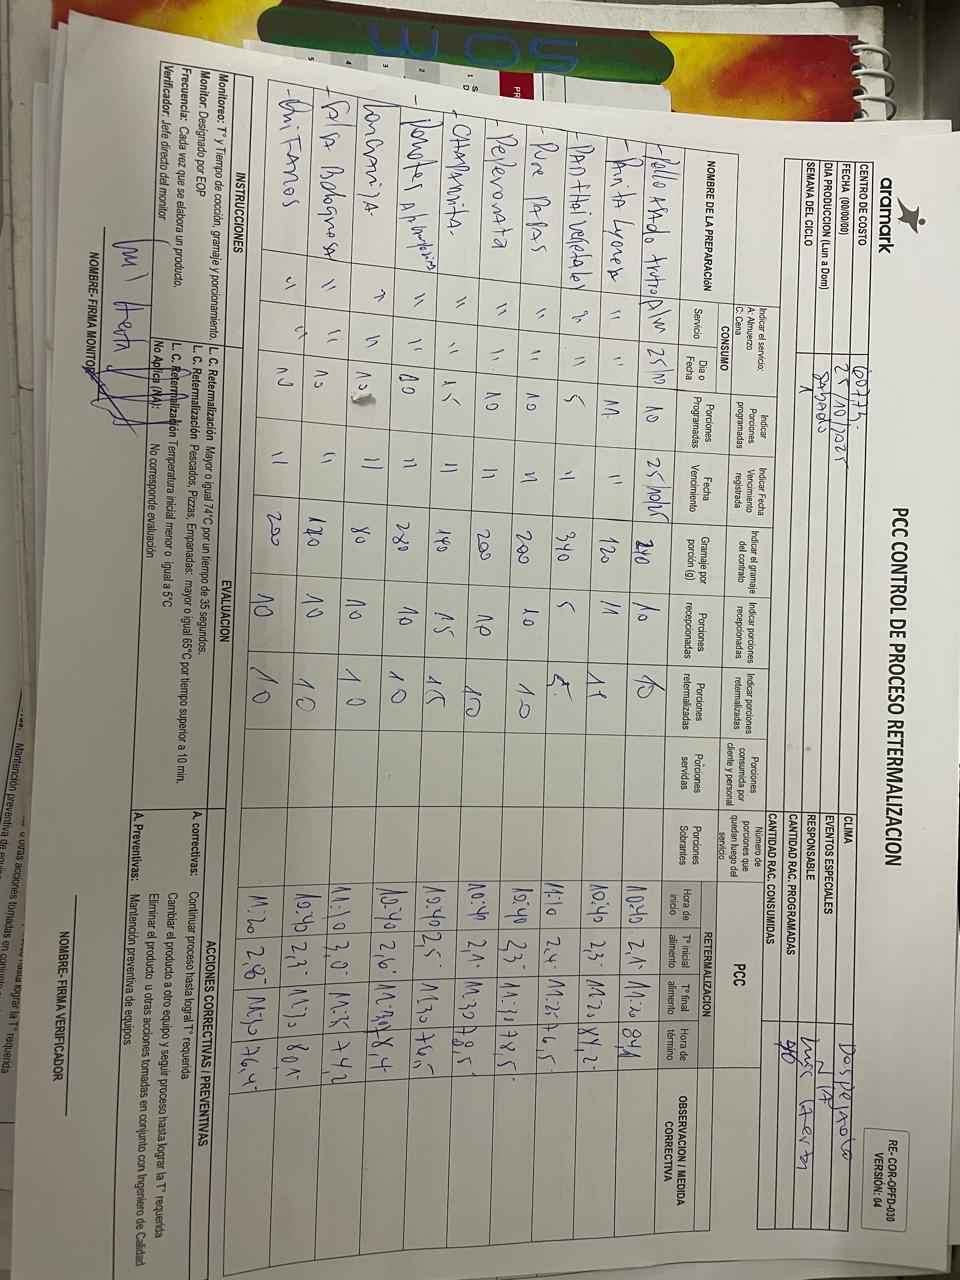 aramark
PCC CONTROL DE PROCESO RETERMALIZACION
RE- COR-OPFD-030
VERSIÓN: 04
CENTRO DE COSTO 60774.
FECHA (00/00/00) 25/10/2025
DIA PRODUCCION (Lun a Dom) SABADO
SEMANA DEL CICLO 1
CLIMA Despejado
EVENTOS ESPECIALES N/A
RESPONSABLE Luis
CANTIDAD RAC. PROGRAMADAS 90
CANTIDAD RAC. CONSUMIDAS
Indicar el servicio:
A: Almuerzo
C: Cena
Indicar Porciones programadas
Indicar Fecha Vencimiento registrada
Indicar el gramaje del contrato
Indicar porciones recepcionadas
Indicar porciones retermalizadas
Porciones consumida por cliente y personal
Número de porciones que quedan luego del servicio
PCC
CONSUMO
RETERMALIZACION
NOMBRE DE LA PREPARACIÓN
Servicio
Dia o Fecha
Porciones Programadas
Fecha Vencimiento
Gramaje por porción (g)
Porciones recepcionadas
Porciones retermalizadas
Porciones servidas
Porciones Sobrantes
Hora de inicio
T° inicial alimento
T° final alimento
Hora de término
OBSERVACION / MEDIDA CORRECTIVA
- Pollo ASADO 25/10 10 240 10 10 10:40 2,1 11:20
- " " 11 " 120 11 11 10:40 2,3
" " 5 " 340 5 5 11:10 2,4 11:25 76,5
- Pure PAPAS " " 10 " 200 10 10 10:40 2,3 11:30 78,5
- Peperonata " " 10 " 200 10 10 10:40 2,1 11:30 78,5
- " " 15 " 140 15 15 10:40 2,5 11:30 76,5
- Porotos " " 10 " 280 10 10 10:40 2,6 11:30 78,4
Longaniza " " 10 " 80 10 10 11:10 3,0 11:35 74,2
- SALSA Bolognesa " " 10 " 120 10 10 10:40 2,3 11:30 80,1
- " " 10 " 200 10 10 11:20 2,8 11:30 76,4
INSTRUCCIONES
EVALUACION
ACCIONES CORRECTIVAS / PREVENTIVAS
Monitoreo: T° y Tiempo de cocción, gramaje y porcionamiento.
Monitor: Designado por EOP
Frecuencia: Cada vez que se elabora un producto.
Verificador: Jefe directo del monitor
L. C. Retermalización Mayor o igual 74°C por un tiempo de 35 segundos.
L. C. Retermalización Pescados, Pizzas, Empanadas: mayor o igual 65°C por tiempo superior a 10 min.
L. C. Retermalización Temperatura inicial menor o igual a 5°C
No Aplica (NA): No corresponde evaluación
A. correctivas: Continuar proceso hasta lograr T° requerida
Cambiar el producto a otro equipo y seguir proceso hasta lograr la T° requerida
Eliminar el producto u otras acciones tomadas en conjunto con Ingeniero de Calidad
A. Preventivas: Mantención preventiva de equipos
NOMBRE- FIRMA MONITOR
NOMBRE- FIRMA VERIFICADOR